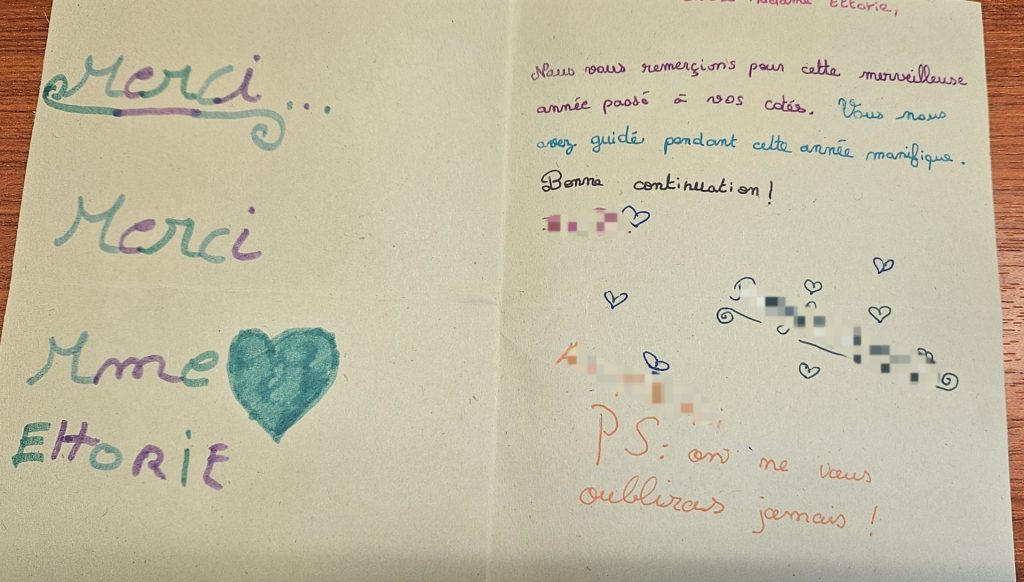 Merci...
Merci
Mme
Ettorie
Madame Ettorie,
Nous vous remerçions pour cette merveilleuse
année passé à vos cotés. Vous nous
avez guidé pendant cette année manifique.
Bonne continuation !
PS: on ne vous
oubliras jamais !